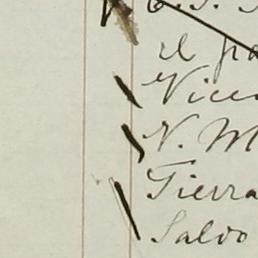 el pa
Vice
N. M
Tierra
Salvo